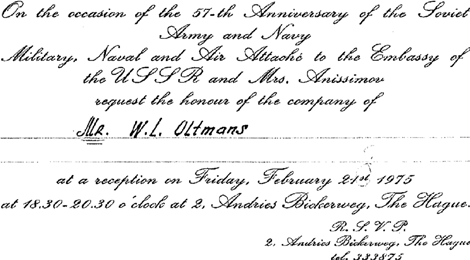 On the occasion of the 57-th Anniversary of the Soviet
Army and Navy
Military, Naval and Air Attaché to the Embassy of
the USSR and Mrs. Anissimov
request the honour of the company of
Mr. W.L. Oltmans
at a reception on Friday, February 21st 1975
at 18.30-20.30 o'clock at 2, Andries Bickerweg, The Hague.
R. S. V. P.
2. Andries Bickerweg, The Hague
tel. 333875